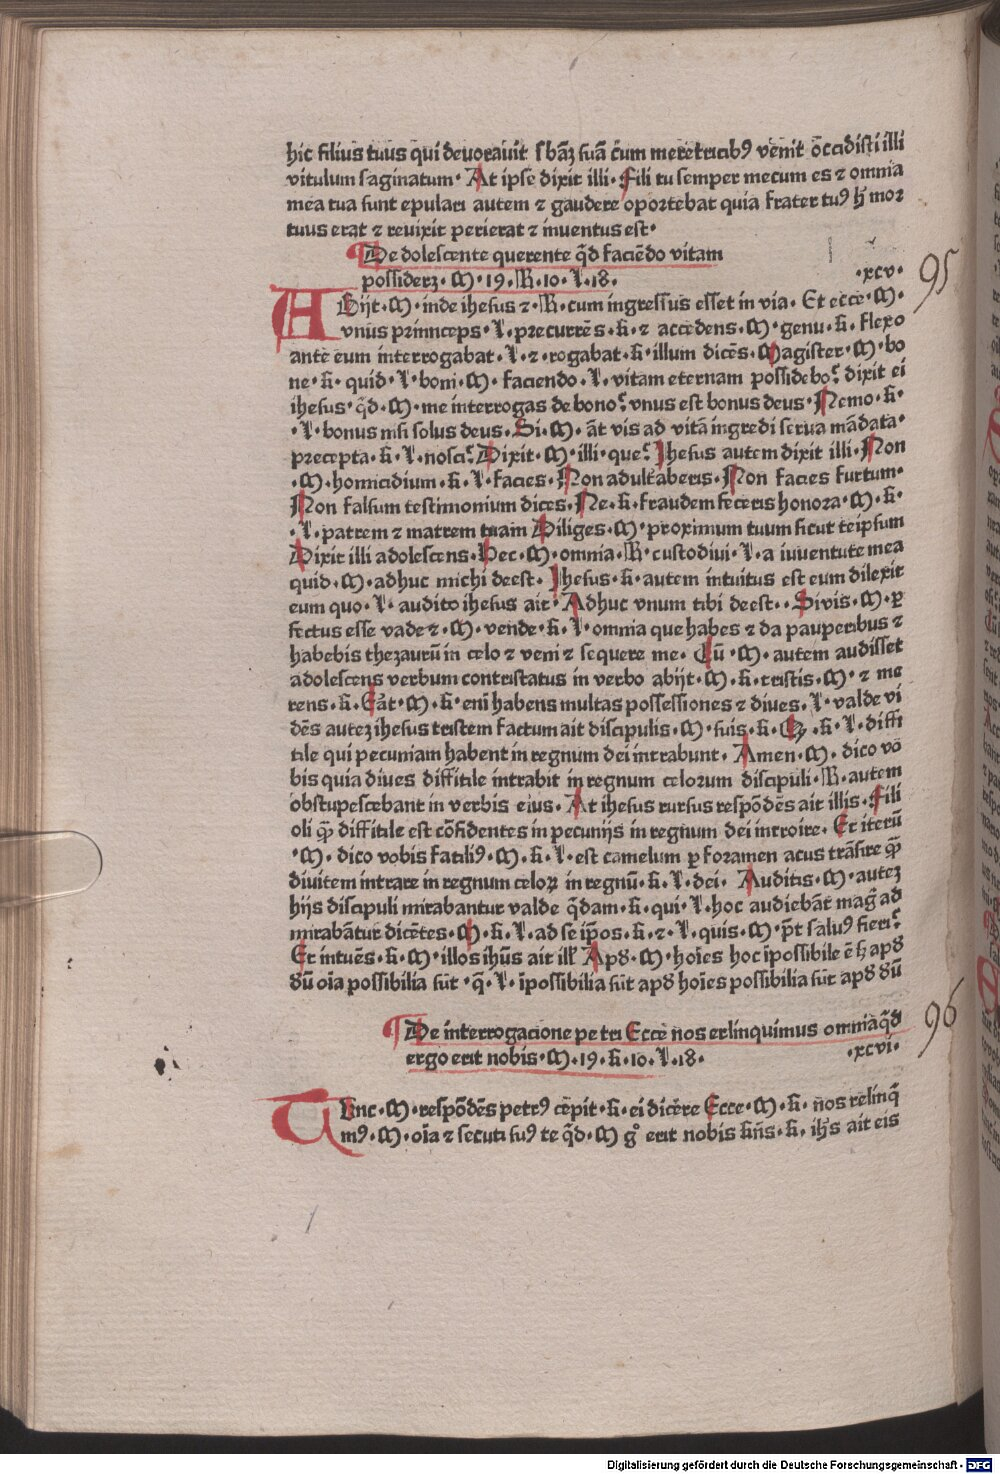 hic filius tuus qui deuorauit sbāʒ suā cum meretricibꝰ venit occidisti illi
vitulum saginatum · At ipse dixit illi · Fili tu semper mecum es ⁊ omnia
mea tua sunt epulari autem ⁊ gaudere oportebat quia frater tuꝰ h̄ mor
tuus erat ⁊ reuixit perierat ⁊ inuentus est ·
De dolescente querente qd̄ faciēdo vitam
possiderʒ · M · 19 · R · 10 · L · 18 ·
· xcv ·
95
ABijt · M · inde ihesus ⁊ · R · cum ingressus esset in via · Et ecce · M ·
vnus prinnceps · L · precurrēs · k · ⁊ accedens · M · genu · k · flexo
ante eum interrogabat · L · ⁊ · rogabat · k · illum dicēs · Magister · M · bo
ne · k · quid · L · boni · M · faciendo · L · vitam eternam possidebo? dixit ei
ihesus · qd̄ · M · me interrogas de bono? vnus est bonus deus · Nemo · k ·
· L · bonus nisi solus deus · Si · M · āt vis ad vitā ingredi serua mādata ·
precepta · k · L · nosci? Dixit · M · illi · que? Ihesus autem dixit illi · Non
· M · homicidium · k · L · facies · Non adulťaberis · Non facies furtum ·
Non falsum testimonium dices · Ne · k · fraudem feceris honora · M · k ·
· L · patrem ⁊ matrem tuam Diliges · M · proximum tuum sicut teipsum
Dixit illi adolescens · Hec · M · omnia · R · custodiui · L · a iuuentute mea
quid · M · adhuc michi deest · Ihesus · k · autem intuitus est eum dilexit
eum quo · L · audito ihesus ait · Adhuc vnum tibi deest · · Si vis · M · ꝑ
fectus esse vade ⁊ · M · vende · k · L · omnia que habes ⁊ da pauperibus ⁊
habebis thezaurū in celo ⁊ veni ⁊ sequere me · Cū · M · autem audisset
adolescens verbum contristatus in verbo abijt · M · k · tristis · M · ⁊ me
rens · k · Eāt · M · k · eni habens multas possessiones ⁊ diues · L · valde vi
dēs auteʒ ihesus tristem factum ait discipulis · M · suis · k · Qʒ · k · L · diffi
cile qui pecuniam habent in regnum dei intrabunt · Amen · M · dico vo
bis quia diues difficile intrabit in regnum celorum discipuli · R · autem
obstupescebant in verbis eius · At ihesus rursus respōdēs ait illis · Fili
oli qꝫ difficile est cōfidentes in pecunijs in regnum dei introire · Et iterū
· M · dico vobis faciliꝰ · M · k · L · est camelum ꝑ foramen acus trāsire qꝫ
diuitem intrare in regnum celoꝝ in regnū · k · L · dei · Auditis · M · auteʒ
hijs discipuli mirabantur valde qdam · k · qui · L · hoc audiebāt mag̃ ad
mirabātur dicētes · M · k · L · ad se ip̄os · k · ⁊ · L · quis · M · p̄t saluꝰ fieri?
Et intuēs · k · M · illos ihūs ait ill' Apd · M · hoīes hoc īpossibile ē h̄ apd
dū oīa possibilia sūt · q̄ · L · īpossibilia sūt apd hoīes possibilia sūt apd dū
De interrogacione petri Ecce nos erlinquimus omnia qd̄
ergo erit nobis · M · 19 · k · 10 · L · 18 ·
· xcvi ·
96
TUnc · M · respōdēs petrꝰ cepit · k · ei dicere Ecce · M · k · nos relinq̄
mꝰ · M · oīa ⁊ secuti suꝰ te qd̄ · M · gͦ erit nobis kn̄s · k · ih̄s ait eis
Digitalisierung gefördert durch die Deutsche Forschungsgemeinschaft - DFG